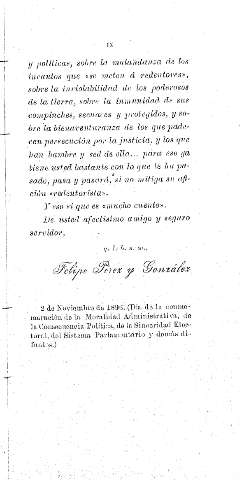 IX
y políticas, sobre la malandanza de los
incautos que «se meten á redentores»,
sobre la inviolabilidad de los poderosos
de la tierra, sobre la inmunidad de sus
compinches, secuaces y protegidos, y so-
bre la bienaventuranza de los que pade-
cen persecución por la justicia, y los que
han hambre y sed de ella... para eso ya
tiene usted bastante con lo que le ha pa-
sado, pasa y pasará, si no mitiga su afi-
ción «redentorista».
Y eso sí que es «mucho cuento».
De usted afectísimo amigo y seguro
servidor,
q. l. b. s. m.,
Felipe Pérez y González
2 de Noviembre de 1896. (Día de la conme-
moración de la Moralidad Administrativa, de
la Consecuencia Política, de la Sinceridad Elec-
toral, del Sistema Parlamentario y demás di-
funtos.)